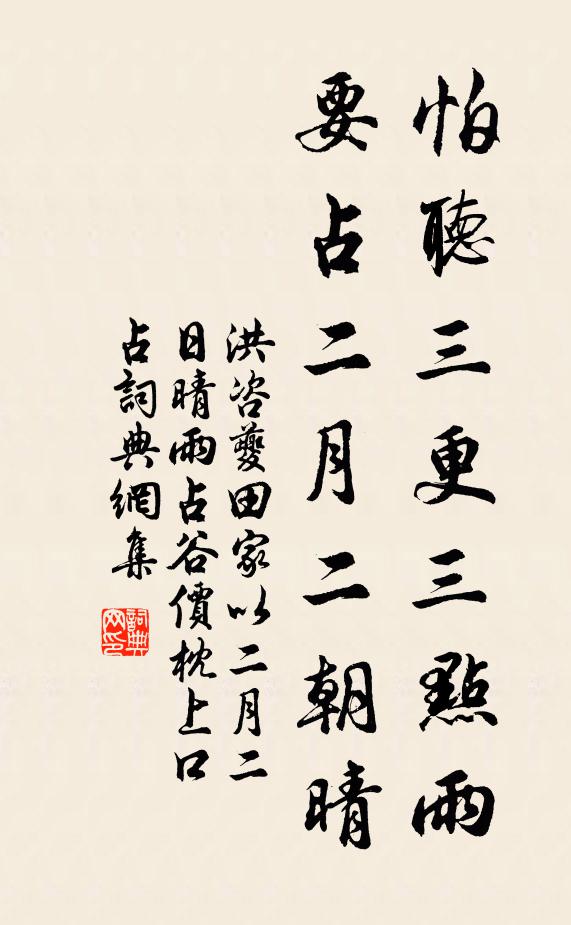 怕聽三更三點雨
要占二月二朝晴
洪咨夔田家以二月二
日晴雨占谷價枕上口
占詞典網集
詞典
网印